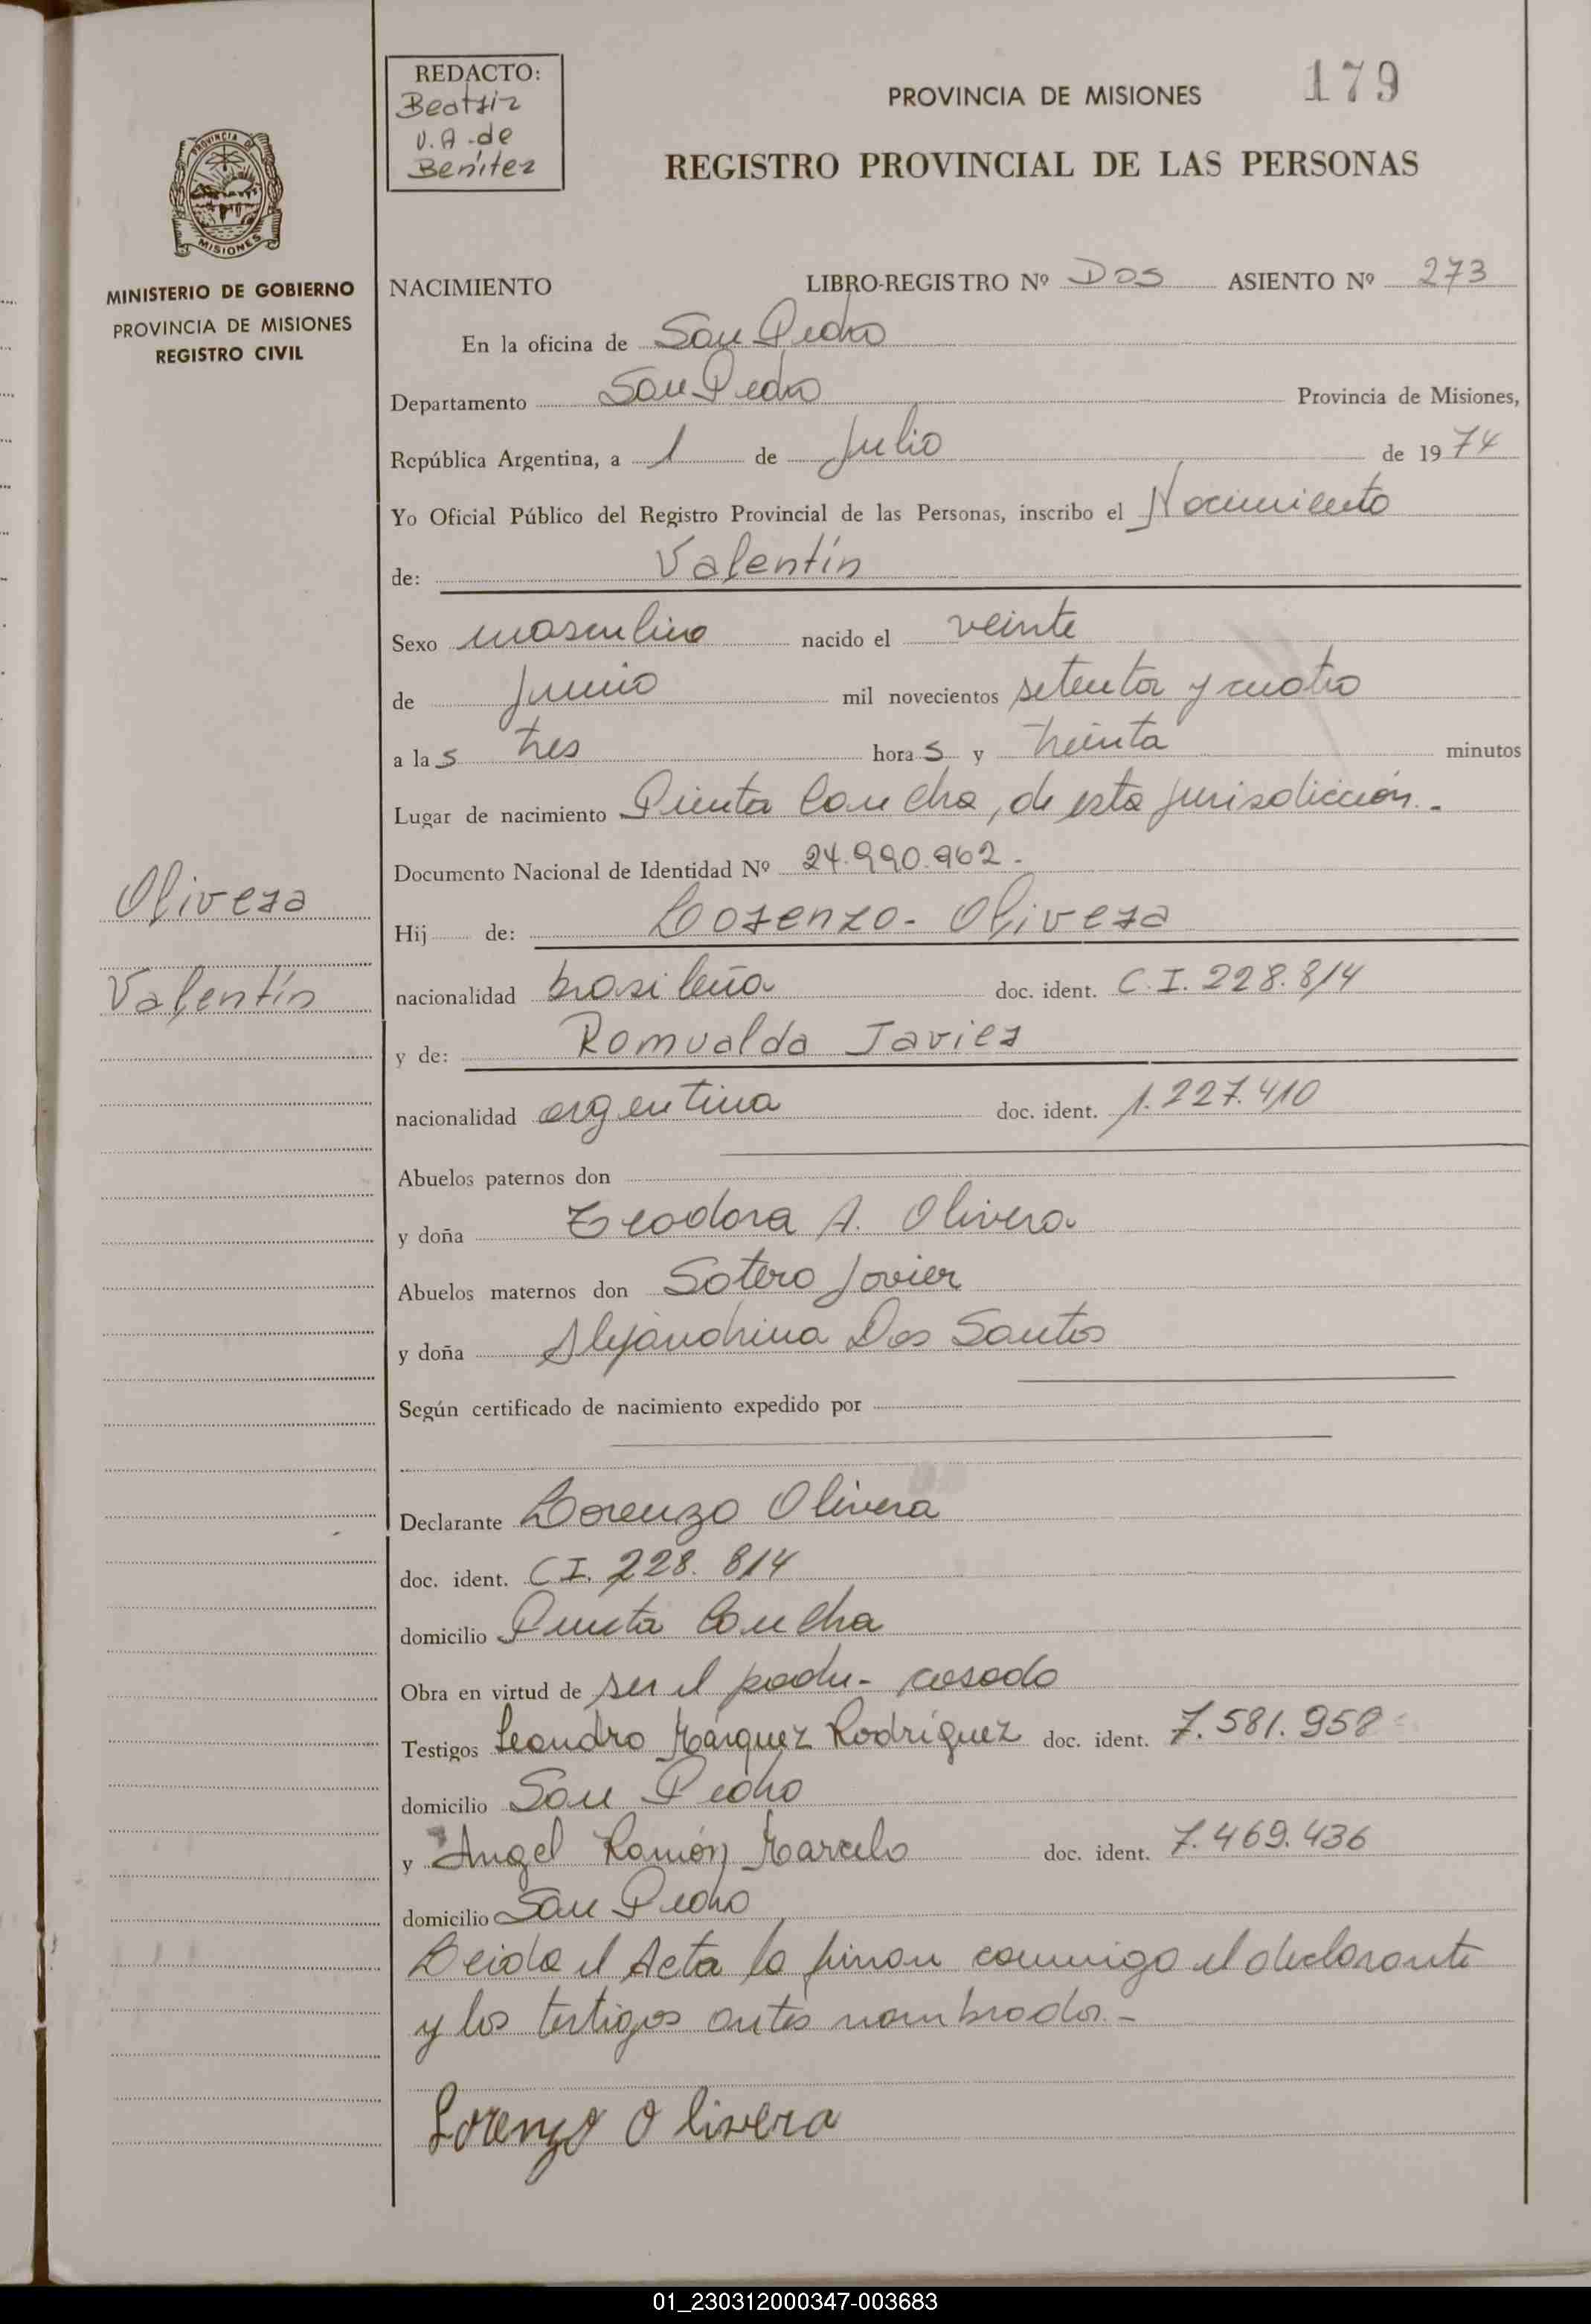 REDACTO:
Beatriz
V. A. de
Benítez
PROVINCIA DE MISIONES
179
REGISTRO PROVINCIAL DE LAS PERSONAS
PROVINCIA DE
MISIONES
MINISTERIO DE GOBIERNO
PROVINCIA DE MISIONES
REGISTRO CIVIL
NACIMIENTO LIBRO-REGISTRO Nº Dos ASIENTO Nº 273
En la oficina de San Pedro
Departamento San Pedro Provincia de Misiones,
República Argentina, a 1 de Julio de 1974
Yo Oficial Público del Registro Provincial de las Personas, inscribo el Nacimiento
de: Valentín
Sexo masculino nacido el veinte
de Junio mil novecientos setenta y cuatro
a las tres horas y treinta minutos
Lugar de nacimiento Puenta Concha, de esta jurisdicción.-
Documento Nacional de Identidad Nº 24.990.962.-
Olivera
Valentín
Hij de: Lorenzo- Olivera
nacionalidad brasileña doc. ident. C.I. 228.814
y de: Romualda Javier
nacionalidad argentina doc. ident. 1.227.410
Abuelos paternos don
y doña Teodora A. Olivera
Abuelos maternos don Sotero Javier
y doña Alejandrina Dos Santos
Según certificado de nacimiento expedido por
Declarante Lorenzo Olivera
doc. ident. C.I. 228.814
domicilio Puenta Concha
Obra en virtud de ser el padre- casado
Testigos Leandro Márquez Rodríguez doc. ident. 7.581.958
domicilio San Pedro
y Angel Ramón Marcelo doc. ident. 7.469.436
domicilio San Pedro
Leida el Acta la firman conmigo el declarante
y los testigos antes nombrados.-
Lorenzo Olivera
01_230312000347-003683